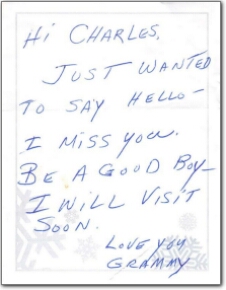 Hi CHARLES.
JUST WANTED
TO SAY HELLO-
I MISS you.
BE A GOOD BOY-
I WILL VISIT
SOON.
LOVE YOU
GRAMMY